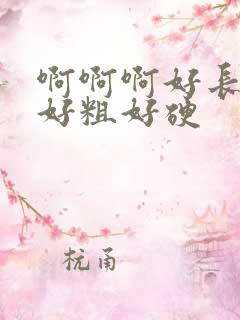 啊啊啊好長
好粗好硬
杭甬